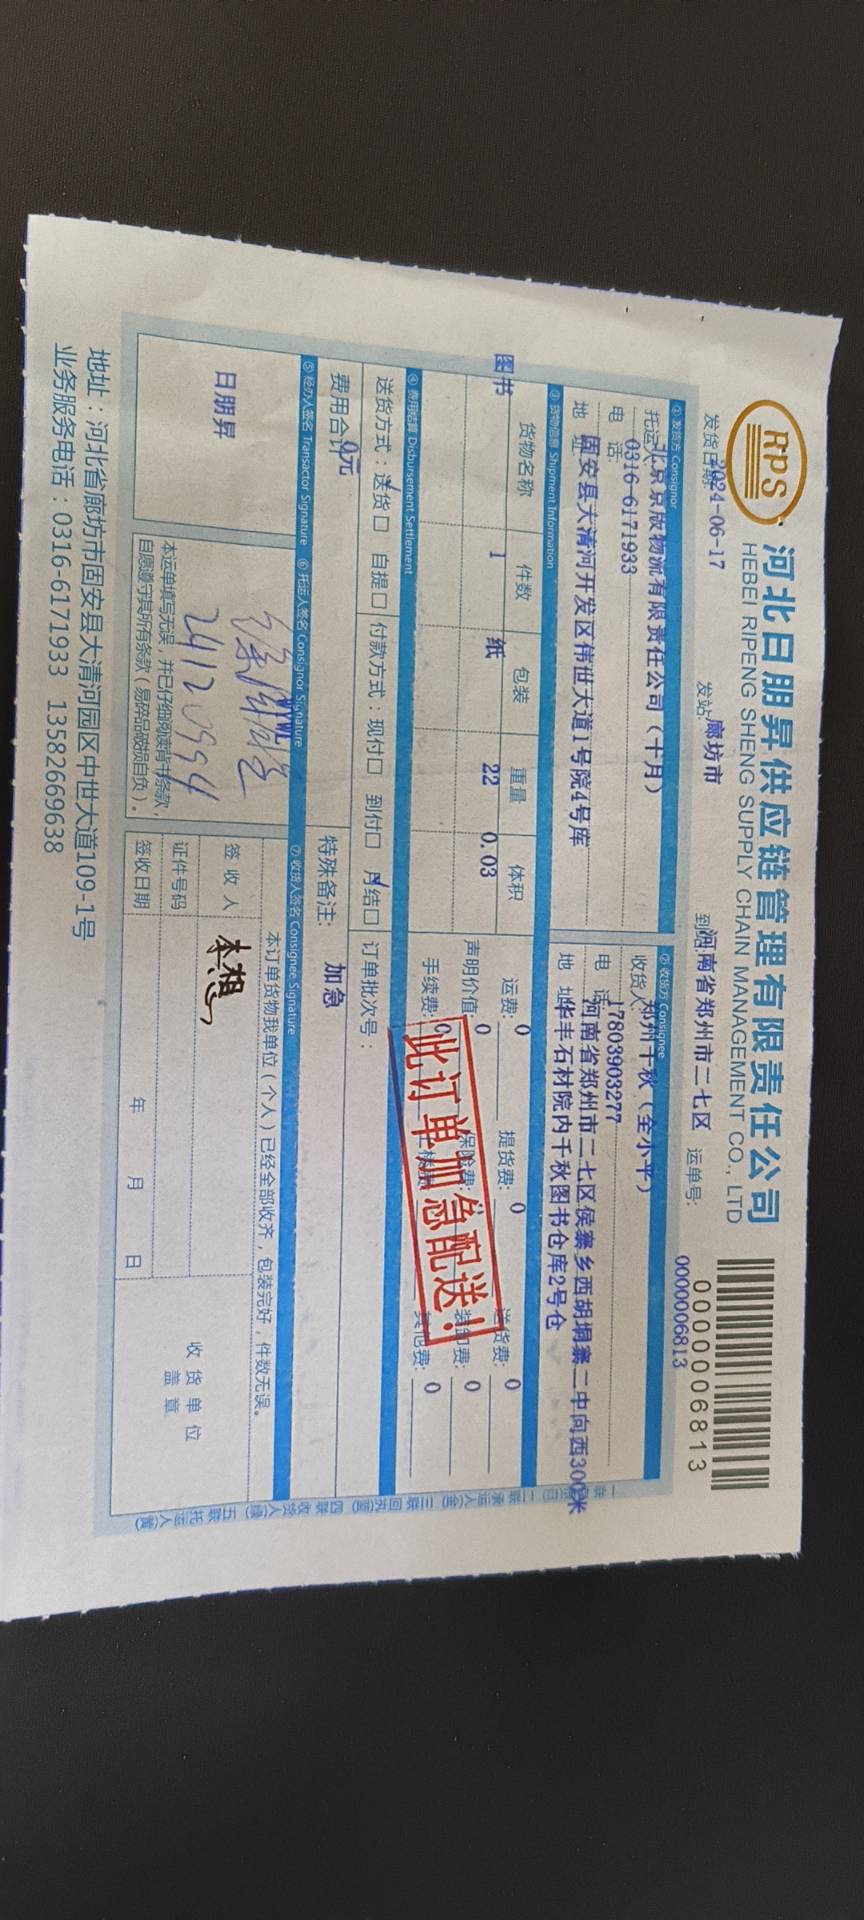 RPS
河北日朋昇供应链管理有限责任公司
HEBEI RIPENG SHENG SUPPLY CHAIN MANAGEMENT CO., LTD
0000006813
发货日期: 2024-06-17 发站: 廊坊市 到站: 河南省郑州市二七区 运单号: 0000006813
① 发货方 Consignor
托运人: 北京京版物流有限责任公司（十月）
电 话: 0316-6171933
地 址: 固安县大清河开发区伟世大道1号院4号库
② 收货方 Consignee
收货人: 郑州千秋（全小平）
电 话: 17803903277
地 址: 河南省郑州市二七区侯寨乡西胡垌寨二中向西300米
华丰石材院内千秋图书仓库2号仓
③ 货物信息 Shipment Information
货物名称 件数 包装 重量 体积
图书 1 纸 22 0.03
运费: 0 提货费: 0 送货费: 0
声明价值: 0 保险费: 装卸费: 0
手续费: 0 上楼费: 其他费: 0
此订单加急配送!
④ 费用结算 Disbursement Settlement
送货方式：送货□ 自提□ 付款方式：现付□ 到付□ 月结□ 订单批次号：
费用合计: 0元 特殊备注: 加急
⑤ 经办人签名 Transactor Signature
日朋昇
⑥ 托运人签名 Consignor Signature
24120994
本运单填写无误，并已仔细阅读背书条款，
自愿遵守其所有条款（易碎品破损自负）。
⑦ 收货人签名 Consignee Signature
本订单货物我单位（个人）已经全部收齐，包装完好，件数无误。
签 收 人
证件号码
签收日期 年 月 日
收 货 单 位
盖 章
地址：河北省廊坊市固安县大清河园区中世大道109-1号
业务服务电话：0316-6171933 13582669638